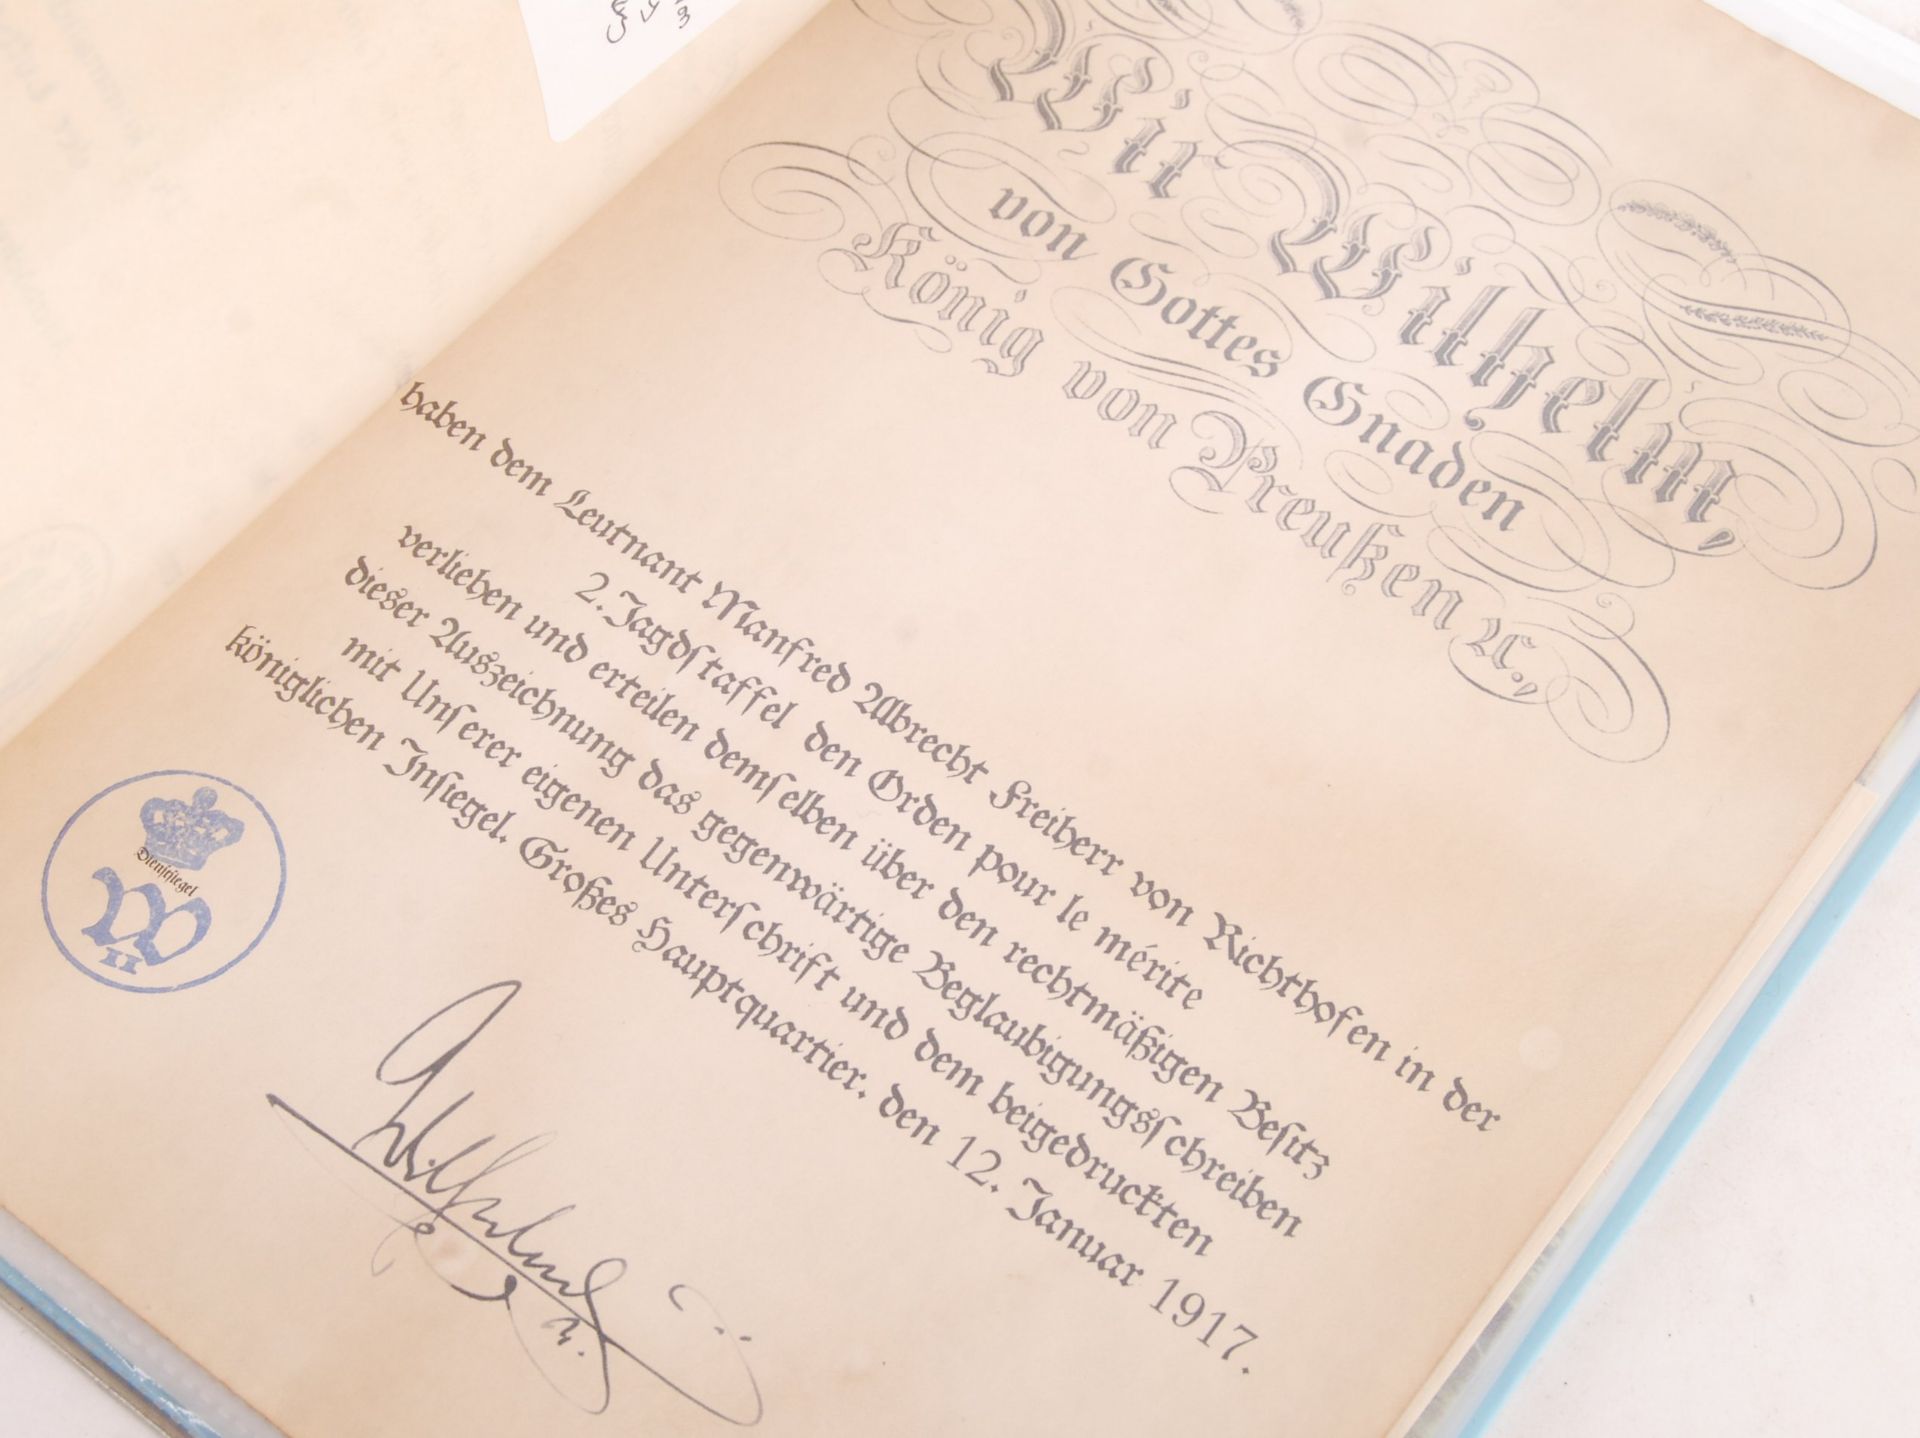 Wir Wilhelm,
von Gottes Gnaden
König von Preußen ꝛc.,
haben dem Leutnant Manfred Albrecht Freiherr von Richthofen in der
2. Jagdstaffel den Orden pour le mérite
verliehen und erteilen demselben über den rechtmäßigen Besitz
dieser Auszeichnung das gegenwärtige Beglaubigungsschreiben
mit Unserer eigenen Unterschrift und dem beigedruckten
königlichen Insiegel. Großes Hauptquartier. den 12. Januar 1917.
Dienstsiegel
W
II
Wilhelm